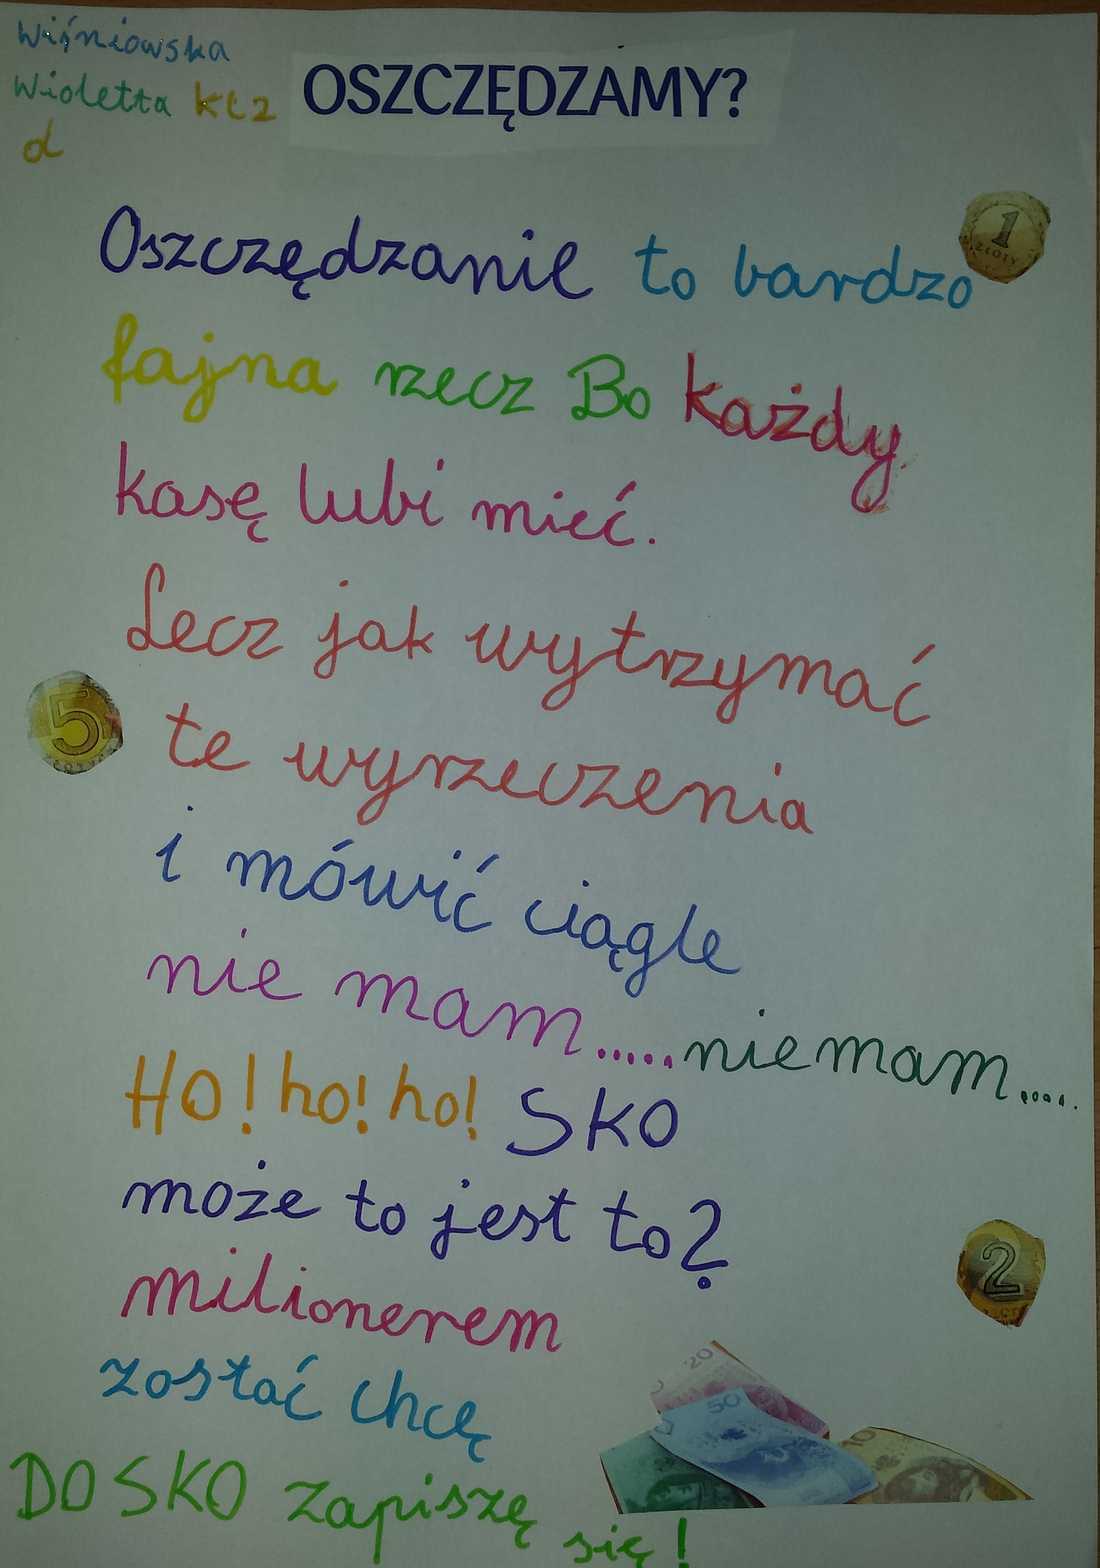 Wiśniowska
Wioletta kl 2
d
OSZCZĘDZAMY?
1
ZŁOTY
Oszczędzanie to bardzo
fajna rzecz Bo każdy
kasę lubi mieć.
Lecz jak wytrzymać
5
te wyrzeczenia
i mówić ciągle
nie mam.....niemam....
Ho! ho! ho! SKO
może to jest to?
2
milionerem
zostać chcę
20
50
DO SKO zapiszę
się!